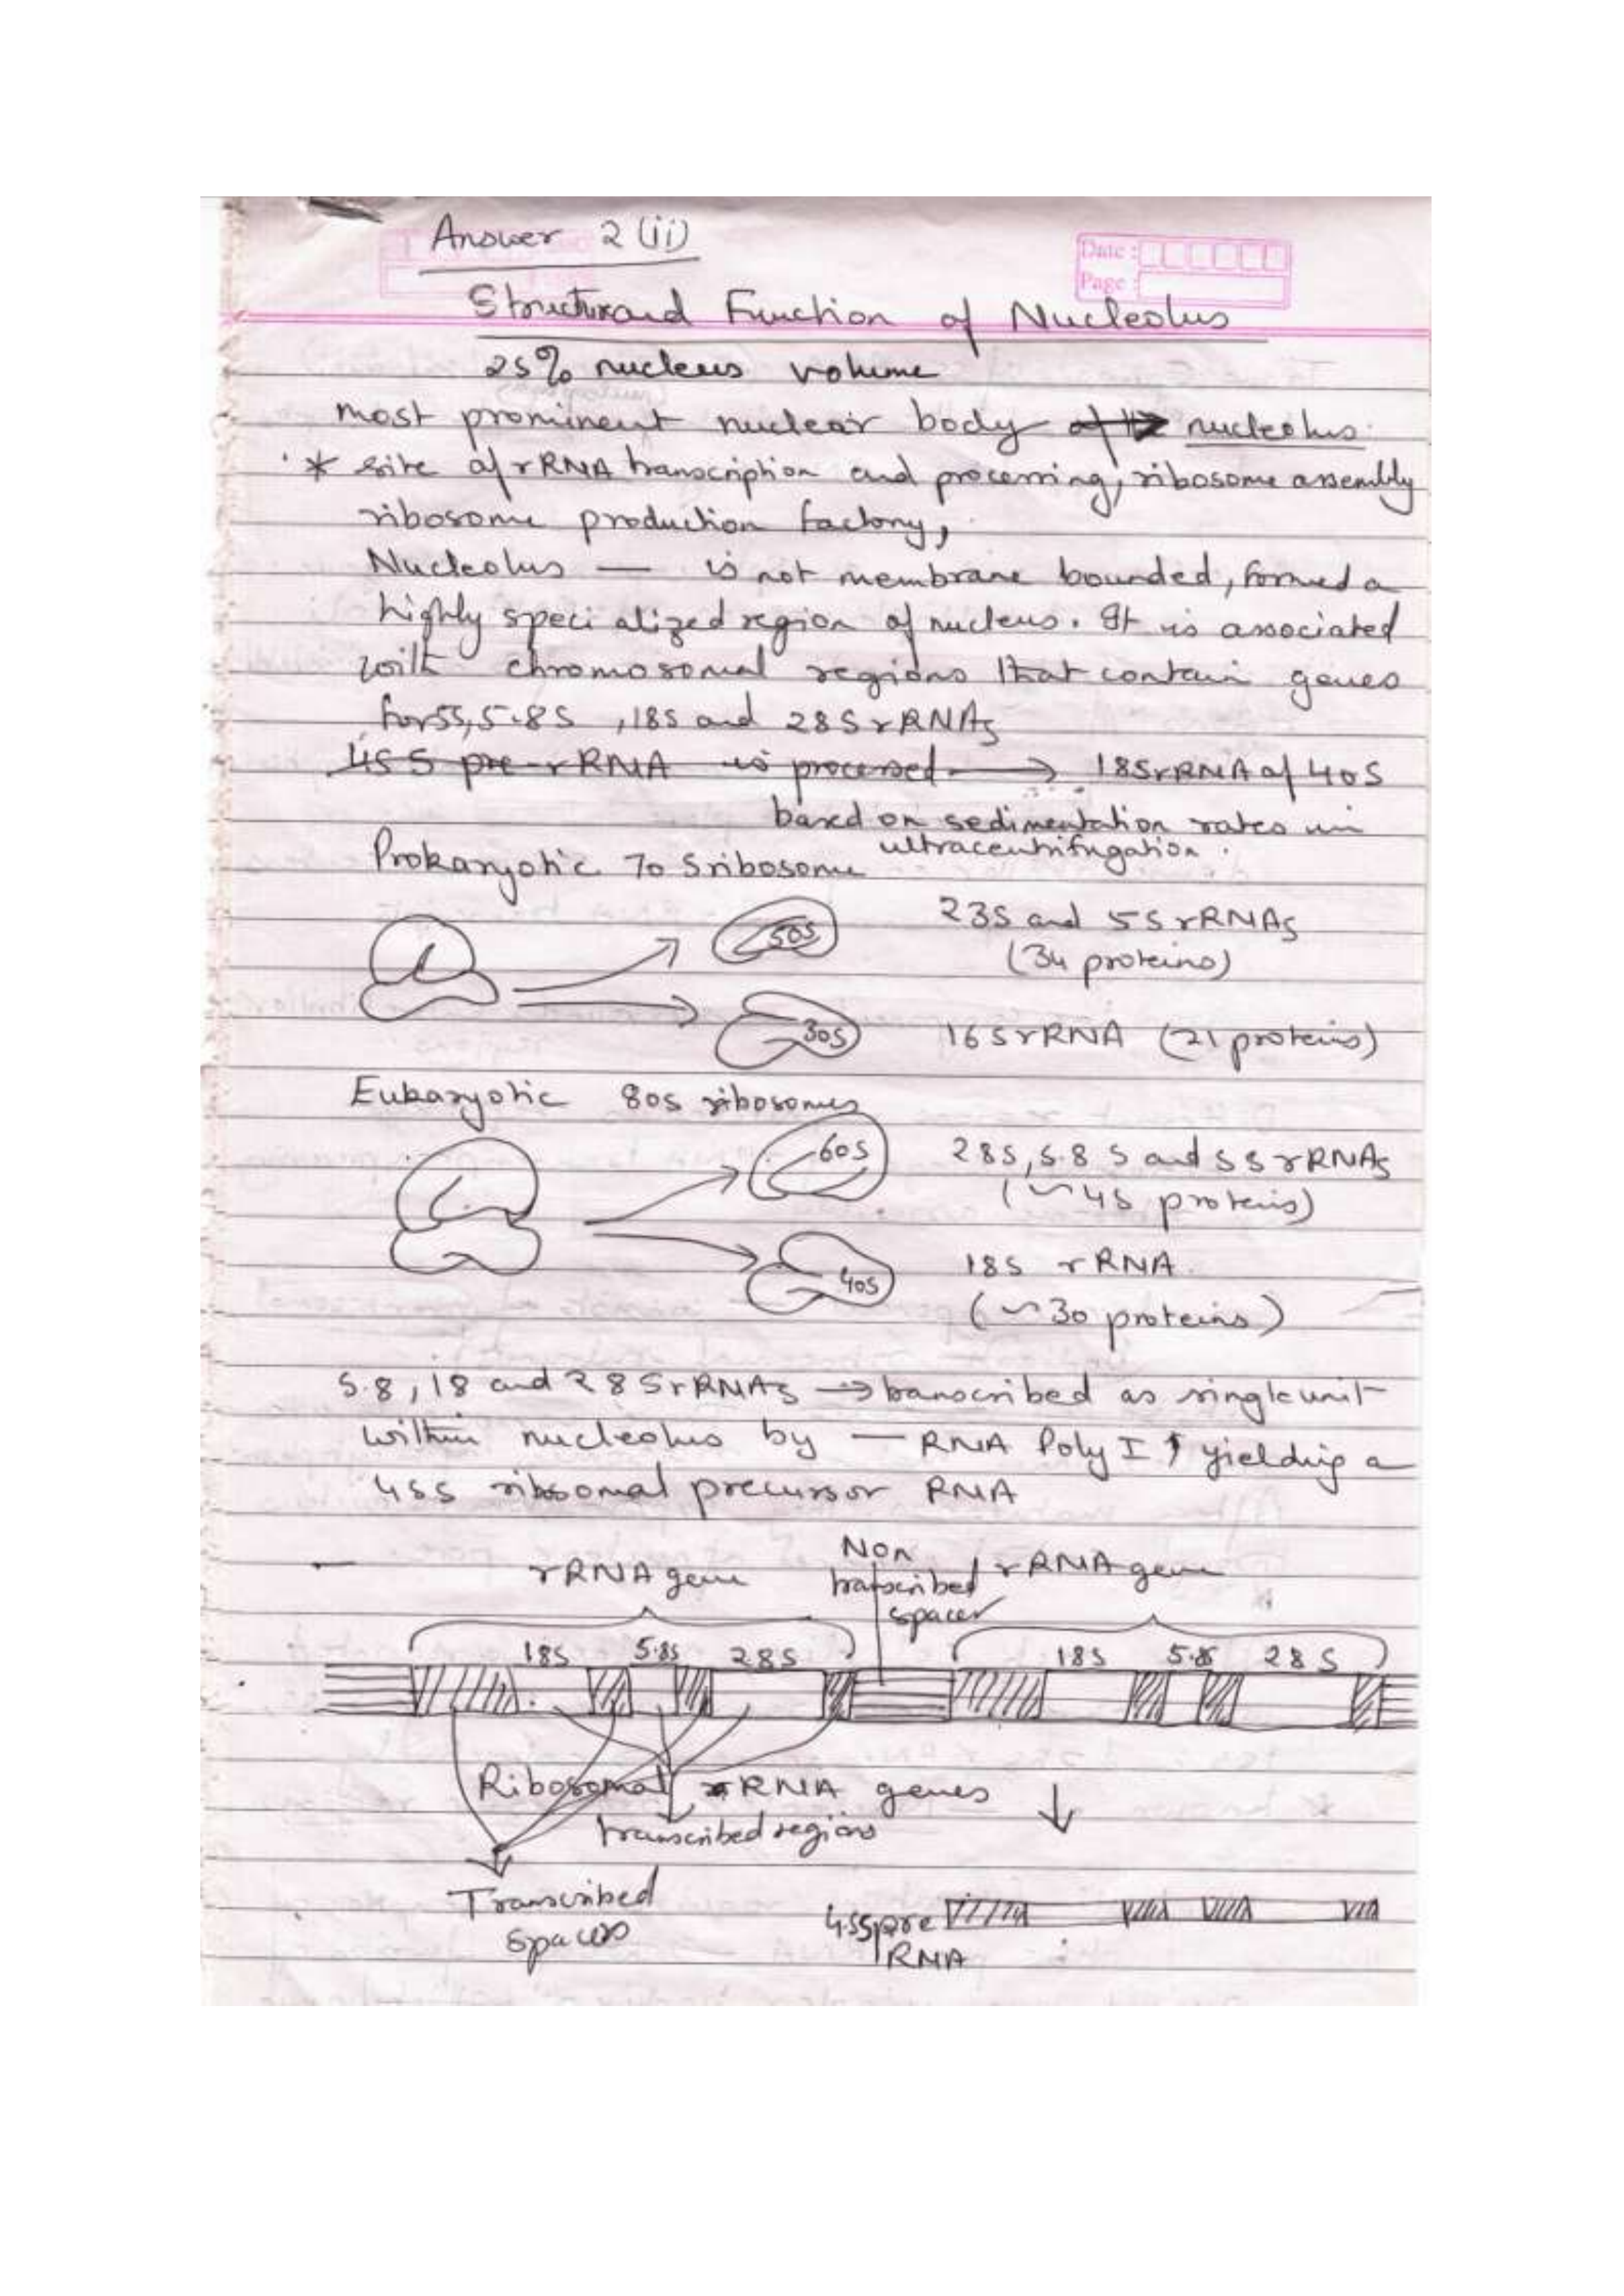 Answer 2 (ii)
Date :
Page :
Structure and Function of Nucleolus
25% nucleus volume
most prominent nuclear body of the nucleolus.
* site of rRNA transcription and processing, ribosome assembly
ribosome production factory,
Nucleolus — is not membrane bounded, formed a
highly specialized region of nucleus. It is associated
with chromosomal regions that contain genes
for 5S, 5.8S, 18S and 28S rRNAs
45 S pre-rRNA is processed → 18S rRNA of 40S
based on sedimentation rates in
ultracentrifugation.
Prokaryotic 70 S ribosome
50S
23S and 5S rRNAs
(34 proteins)
30S
16S rRNA (21 proteins)
Eukaryotic 80S ribosomes
60S
28S, 5.8 S and 5S rRNAs
(~45 proteins)
40S
18S rRNA.
(~30 proteins)
5.8, 18 and 28S rRNAs → transcribed as single unit
within nucleolus by — RNA Poly I, yielding a
45S ribosomal precursor RNA
— rRNA gene
Non
transcribed
spacer
rRNA gene
18S 5.8S 28S
18S 5.8S 28S
Ribosomal RNA genes
transcribed regions
Transcribed
spacers
45S pre
RNA